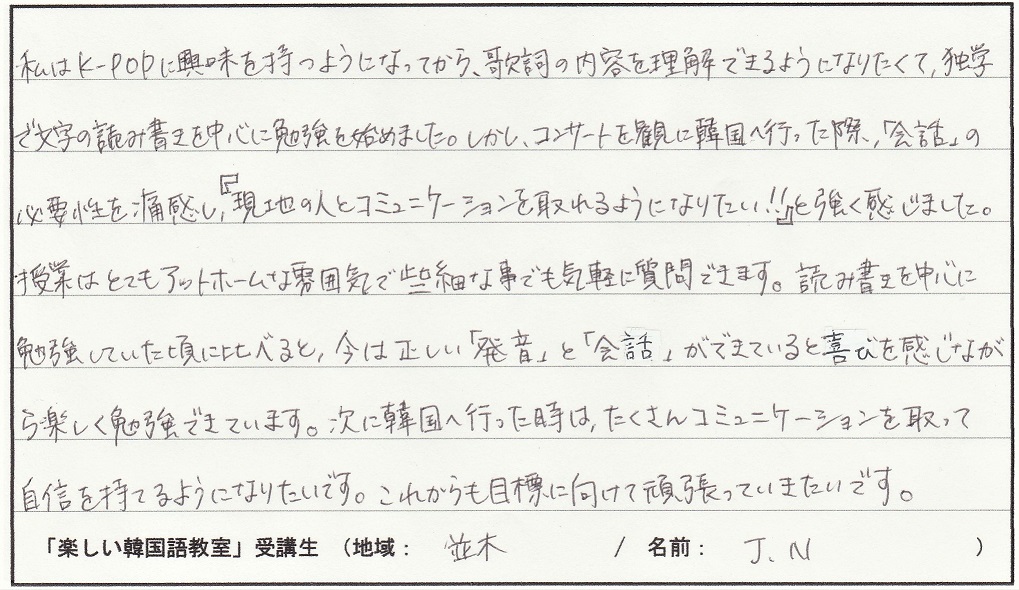 私はK-POPに興味を持つようになってから、歌詞の内容を理解できるようになりたくて、独学
で文字の読み書きを中心に勉強を始めました。しかし、コンサートを観に韓国へ行った際、「会話」の
必要性を痛感し、『現地の人とコミュニケーションを取れるようになりたい!!』と強く感じました。
授業はとてもアットホームな雰囲気で些細な事でも気軽に質問できます。読み書きを中心に
勉強していた頃に比べると、今は正しい「発音」と「会話」ができていると喜びを感じなが
ら楽しく勉強できています。次に韓国へ行った時は、たくさんコミュニケーションを取って
自信を持てるようになりたいです。これからも目標に向けて頑張っていきたいです。
「楽しい韓国語教室」受講生 (地域: 並木 / 名前: J.N )